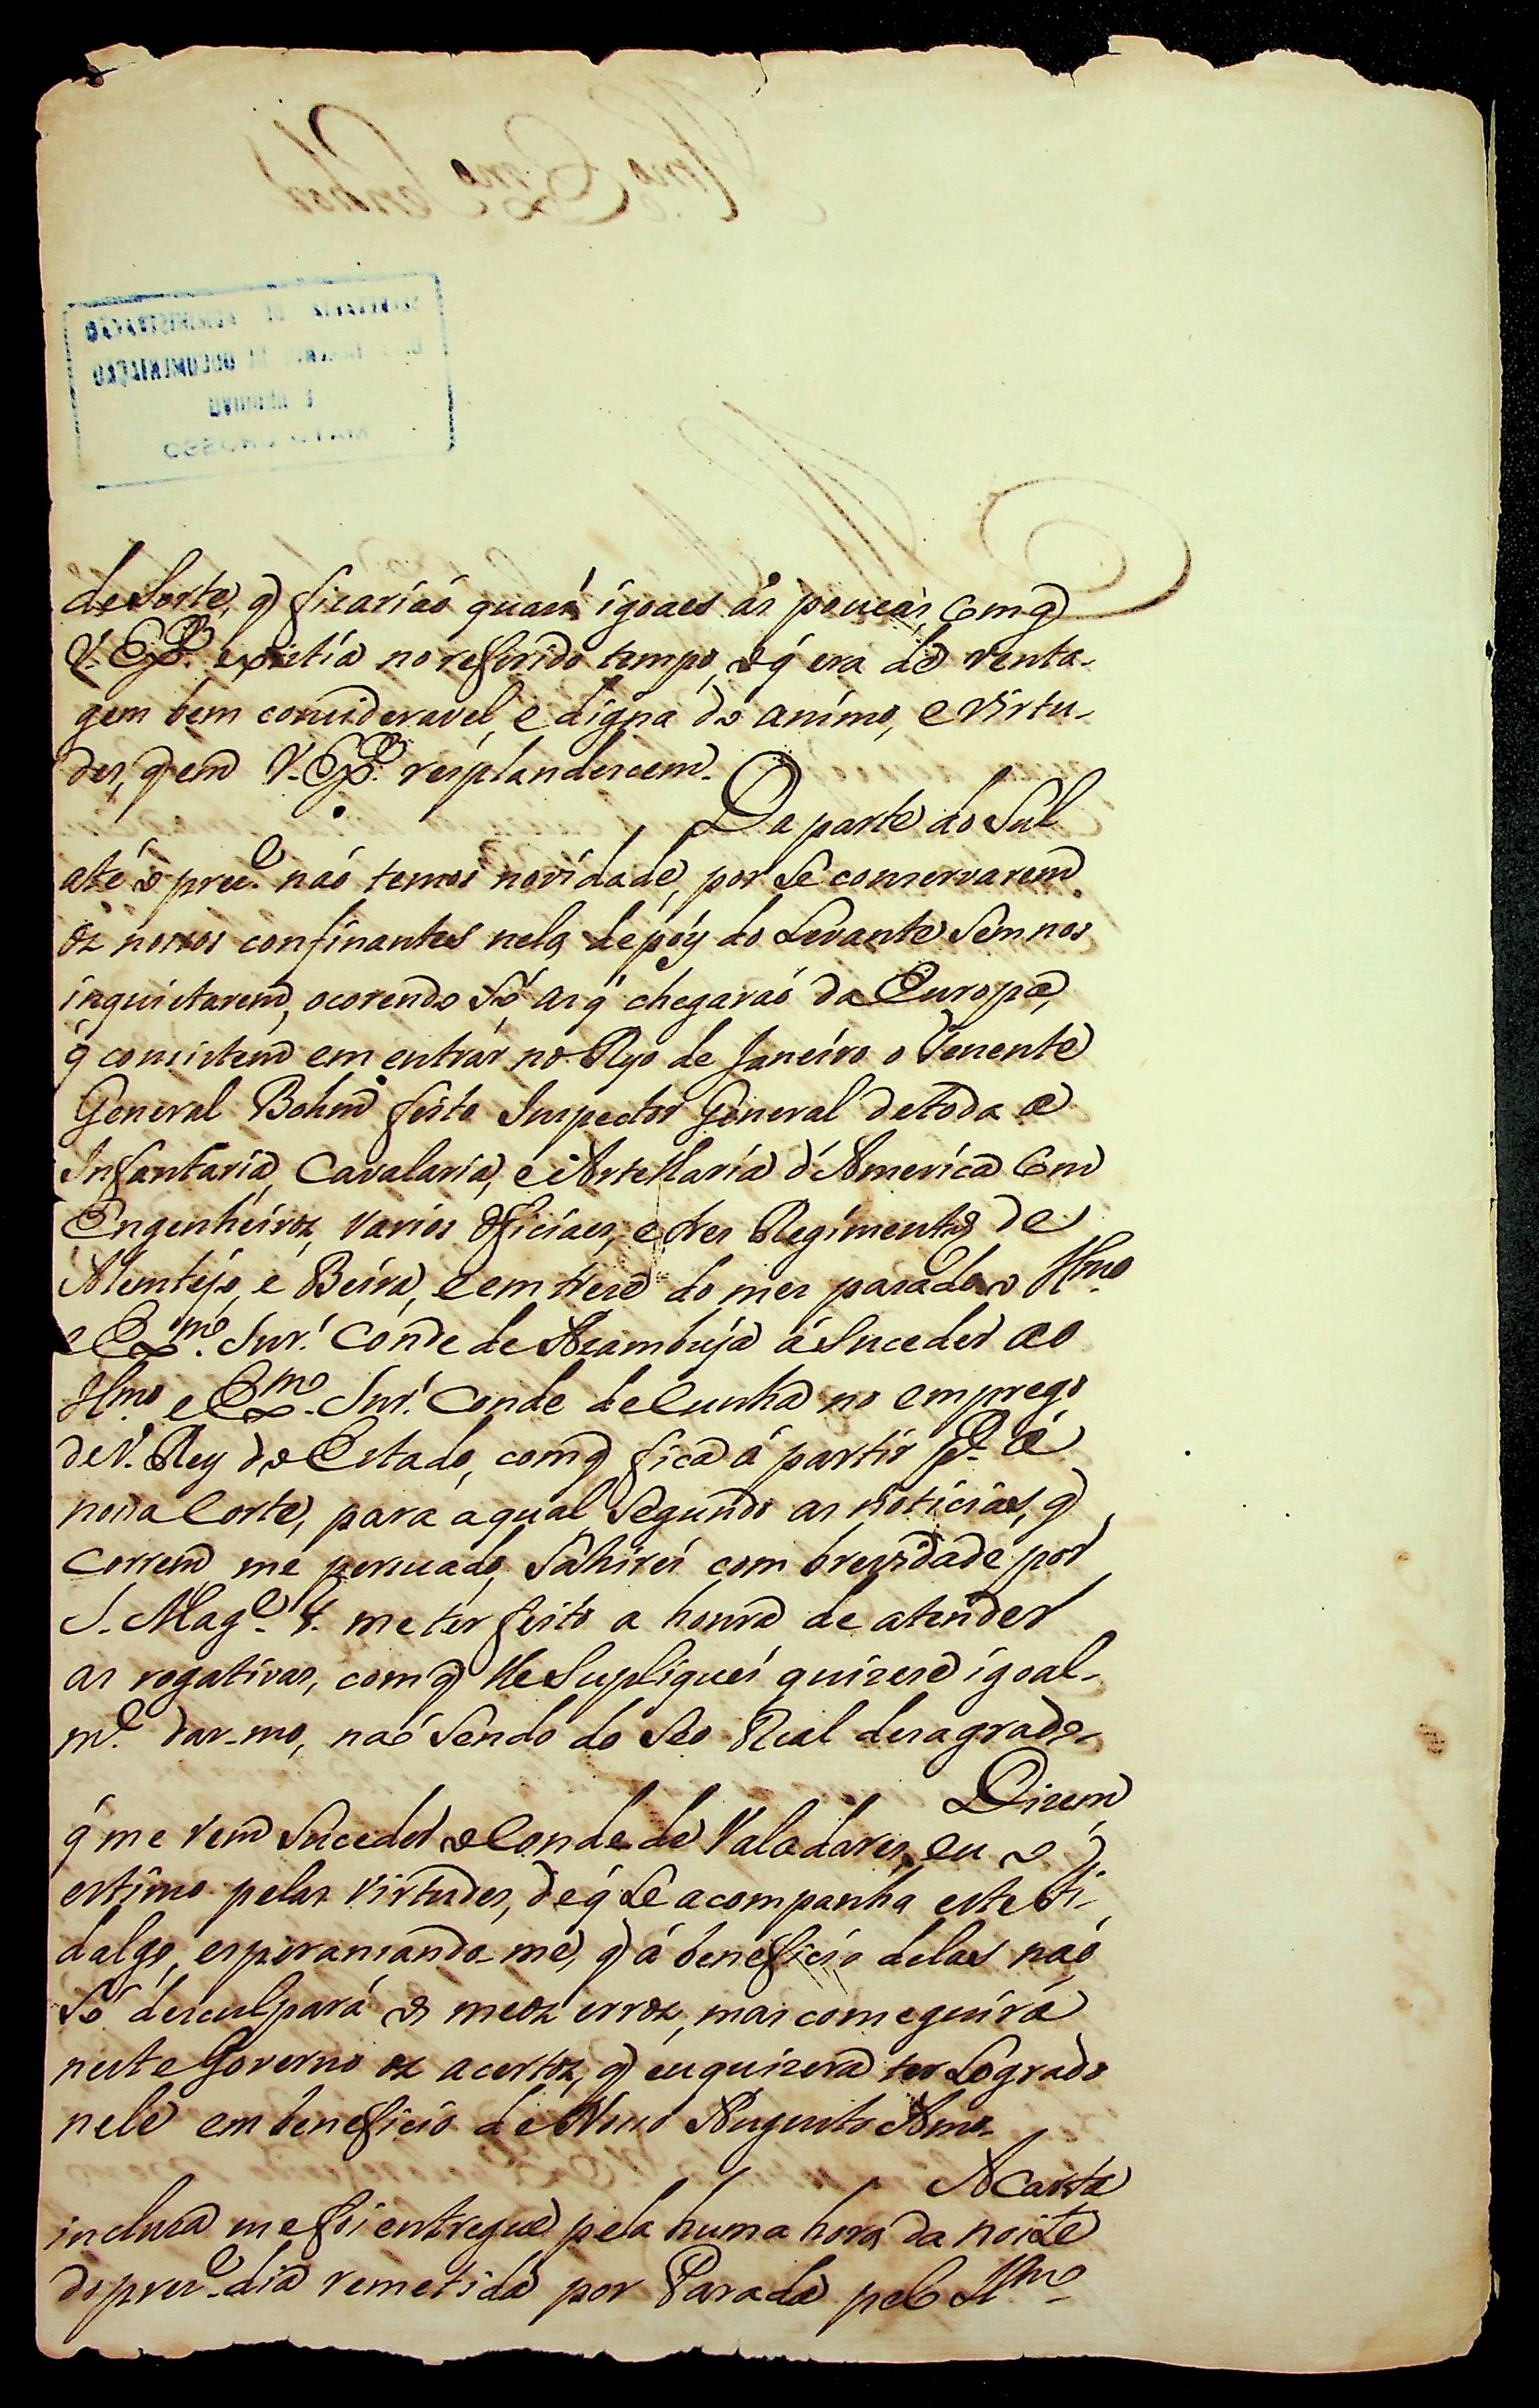 de Sorte, q̃ ficariaó quazi igoaes ás poucas, com q̃
V. Exª. existia no referido tempo, o q̃ era de venta-
gem bem consideravel, e digna do animo, e virtu-
des, q̃ em V. Exª. resplandescem.
Da parte do Sul
até o prezᵉ. naó temos novidade, por Se conservarem
os nossos confinantes nela, depóys do Levante Sem nos
inquietarem, ocorendo Só, as q̃ chegaraó da Europa,
q̃ consistem em entrár no Ryo de Janeiro o Tenente
General Bohm feito Inspector General de toda a
Infantaria, Cavalaria, e Artelharia d'America com
Engenheiros, varios Oficiaes, e tres Regimentos de
Alentejo, e Beira, e em treze do mes pasado o Ilmo
e Exmo. Snr. Conde de Azambuja á Suceder ao
Ilmo. e Exmo. Snr. Conde de Cunha no emprego
de V. Rey do Estado, com q̃ fica á partir pª. a
nosa Corte, para a qual Segundo as noticias, q̃
correm me persuado, Sahirei com brevidade por
S. Magᵉ. F. me ter feito a honra de atender
as rogativas, com q̃ lhe Supliquei quizese igoal-
mᵉ. dar-mo, naó Sendo do Seo Real desagrado.
Dizem
q̃ me vem Suceder o Conde de Valadares, eu o
estimo pelas virtudes, de q̃ Se acompanha este Fi-
dalgo, esperansando-me, q̃ á beneficio delas naó
Só desculpará os meos erros, mas conseguirá
neste Governo os acertos, q̃ eu quizera ter Logrado
nele em beneficio de Noso Augusto Amo.
A Carta
incluza me foi entregue pela huma hora da noite
do prezᵉ. dia remetida por Parada pelo Ilmo.